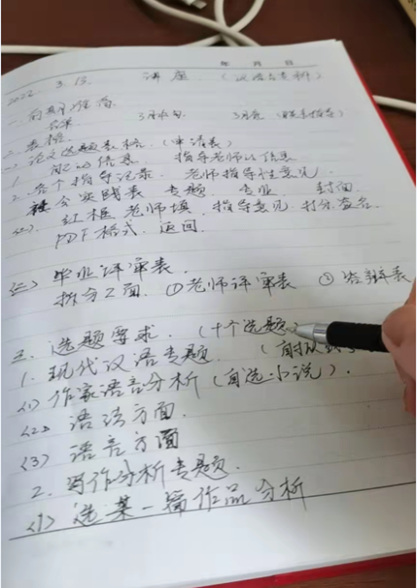 年 月 日
2022. 3. 13. 讲座
一. 前期准备
3月中旬 3月底
二. 表格
论文选题表格. (申请表)
1. 自己的信息 指导老师的信息
2. 各个指导记录. 老师指导性意见.
社会实践表 专题 专业 封面
红框 老师填. 指导意见. 打分. 签名.
PDF格式. 返回.
(三) 毕业评审表.
拆分2面. ①老师评审表 ②答辩表
三. 选题要求. (十个选题
1. 现代汉语专题
(1) 作家语言分析 (自选小说).
(2) 语法方面.
(3) 语言方面
2. 写作分析专题.
(1) 选某一篇作品分析